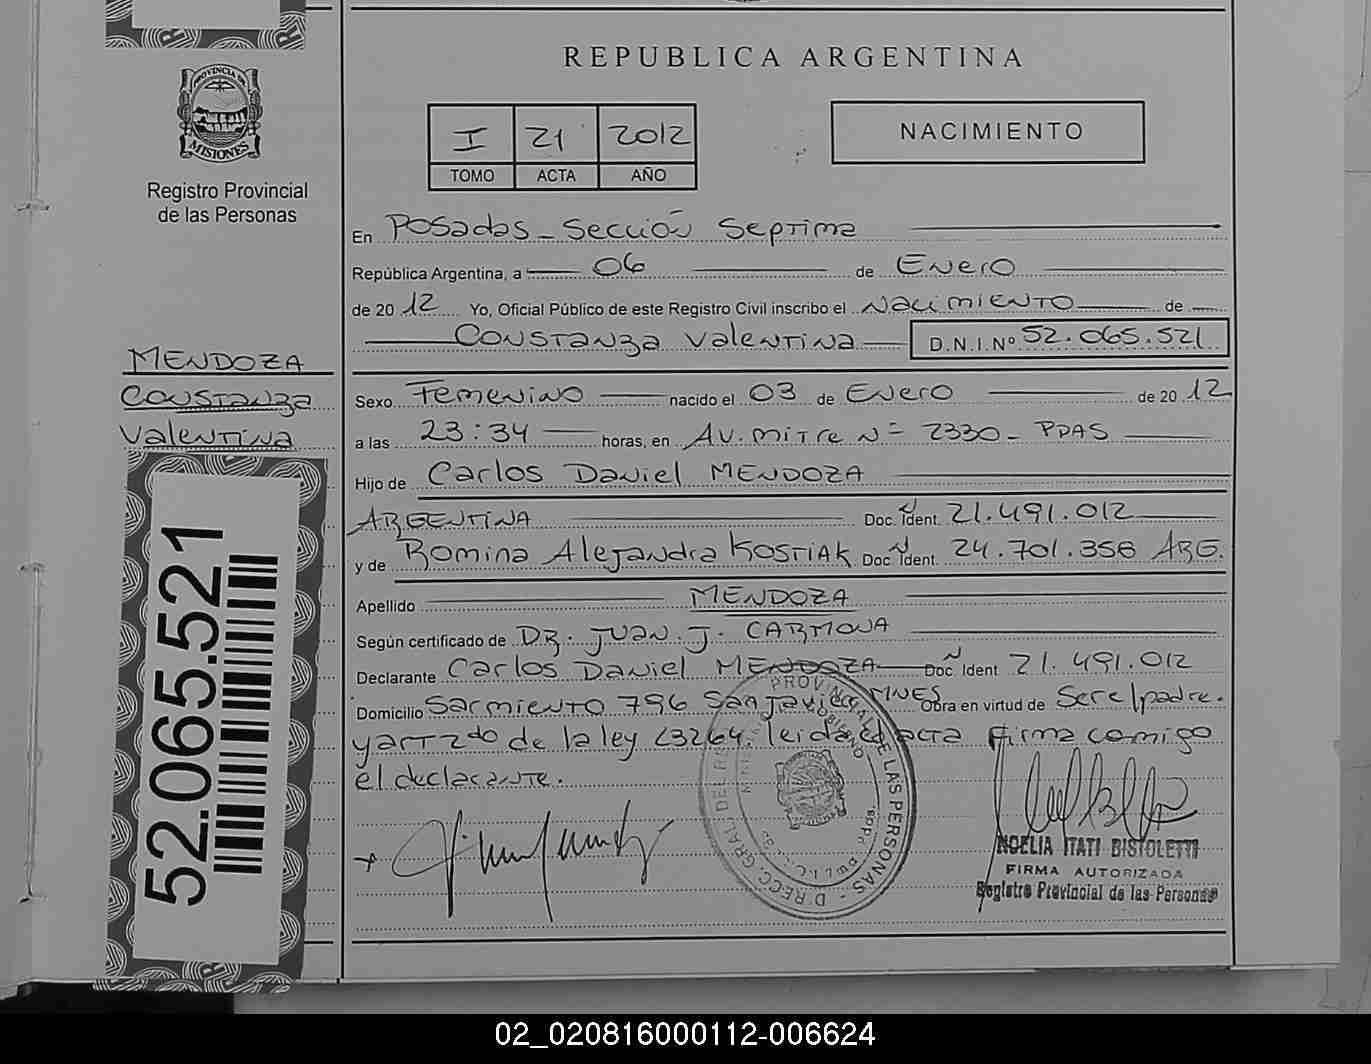 REPUBLICA ARGENTINA
PROVINCIA DE
MISIONES
Registro Provincial
de las Personas
I 21 2012
TOMO ACTA AÑO
NACIMIENTO
En Posadas - Sección Septima
República Argentina, a 06 de Enero
de 2012 Yo, Oficial Público de este Registro Civil inscribo el Nacimiento de
Constanza Valentina D.N.I.Nº 52.065.521
MENDOZA
Constanza
Valentina
Sexo Femenino nacido el 03 de Enero de 2012
a las 23:34 horas, en Av. Mitre Nº 2330 - PDAS
Hijo de Carlos Daniel MENDOZA
ARGENTINA Doc. Ident. 21.491.012
y de Romina Alejandra Kostiak Doc. Ident. 24.701.356 ARG.
Apellido MENDOZA
Según certificado de DR. JUAN. J. CARMONA
Declarante Carlos Daniel MENDOZA Doc. Ident 21.491.012
Domicilio Sarmiento 796 San Javier MNES Obra en virtud de Ser el padre.
y art 2do de la ley 23264. leida el acta firma comigo
el declarante.
NOELIA ITATI BISTOLETTI
FIRMA AUTORIZADA
Registro Provincial de las Personas
52.065.521
02_020816000112-006624